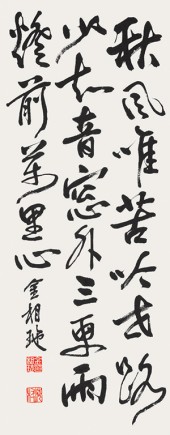 秋風唯苦吟世路
少知音窓外三更雨
燈前萬里心
金相